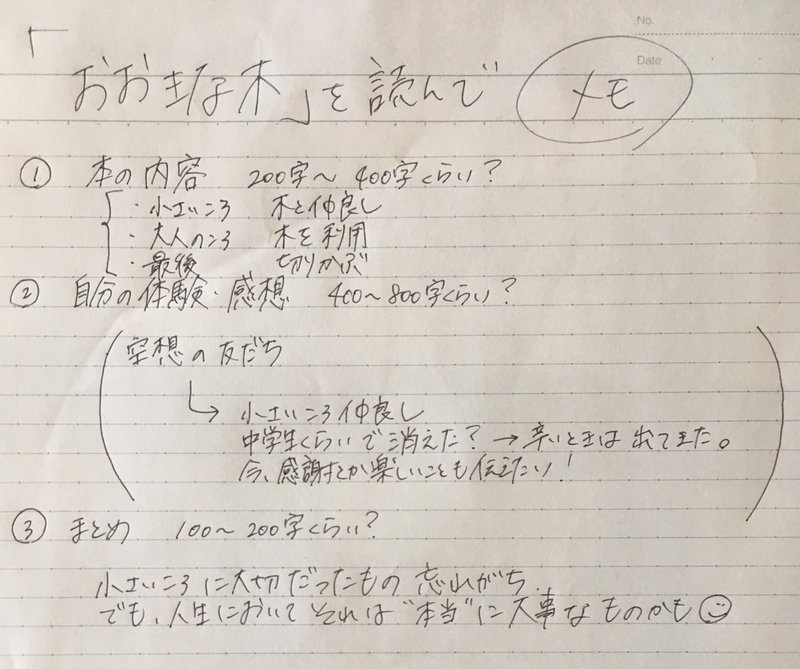 No.
Date
「おおきな木」を読んで メモ
① 本の内容 200字〜400字くらい？
・小さいころ 木と仲良し
・大人のころ 木を利用
・最後 切りかぶ
② 自分の体験・感想 400〜800字くらい？
空想の友だち
↳ 小さいころ仲良し
中学生くらいで消えた？→辛いときは出てきた。
今、感謝とか楽しいことも伝えたい！
③ まとめ 100〜200字くらい？
小さいころに大切だったもの 忘れがち。
でも、人生においてそれは“本当”に大事なものかも☺